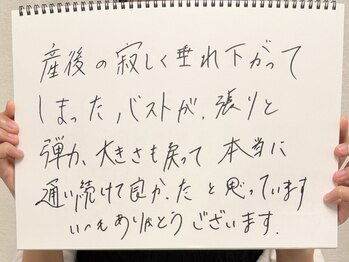 産後の寂しく垂れ下がって
しまった、バストが、張りと
弾力、大きさも戻って 本当に
通い続けて良かったと思っています
いつもありがとうございます.